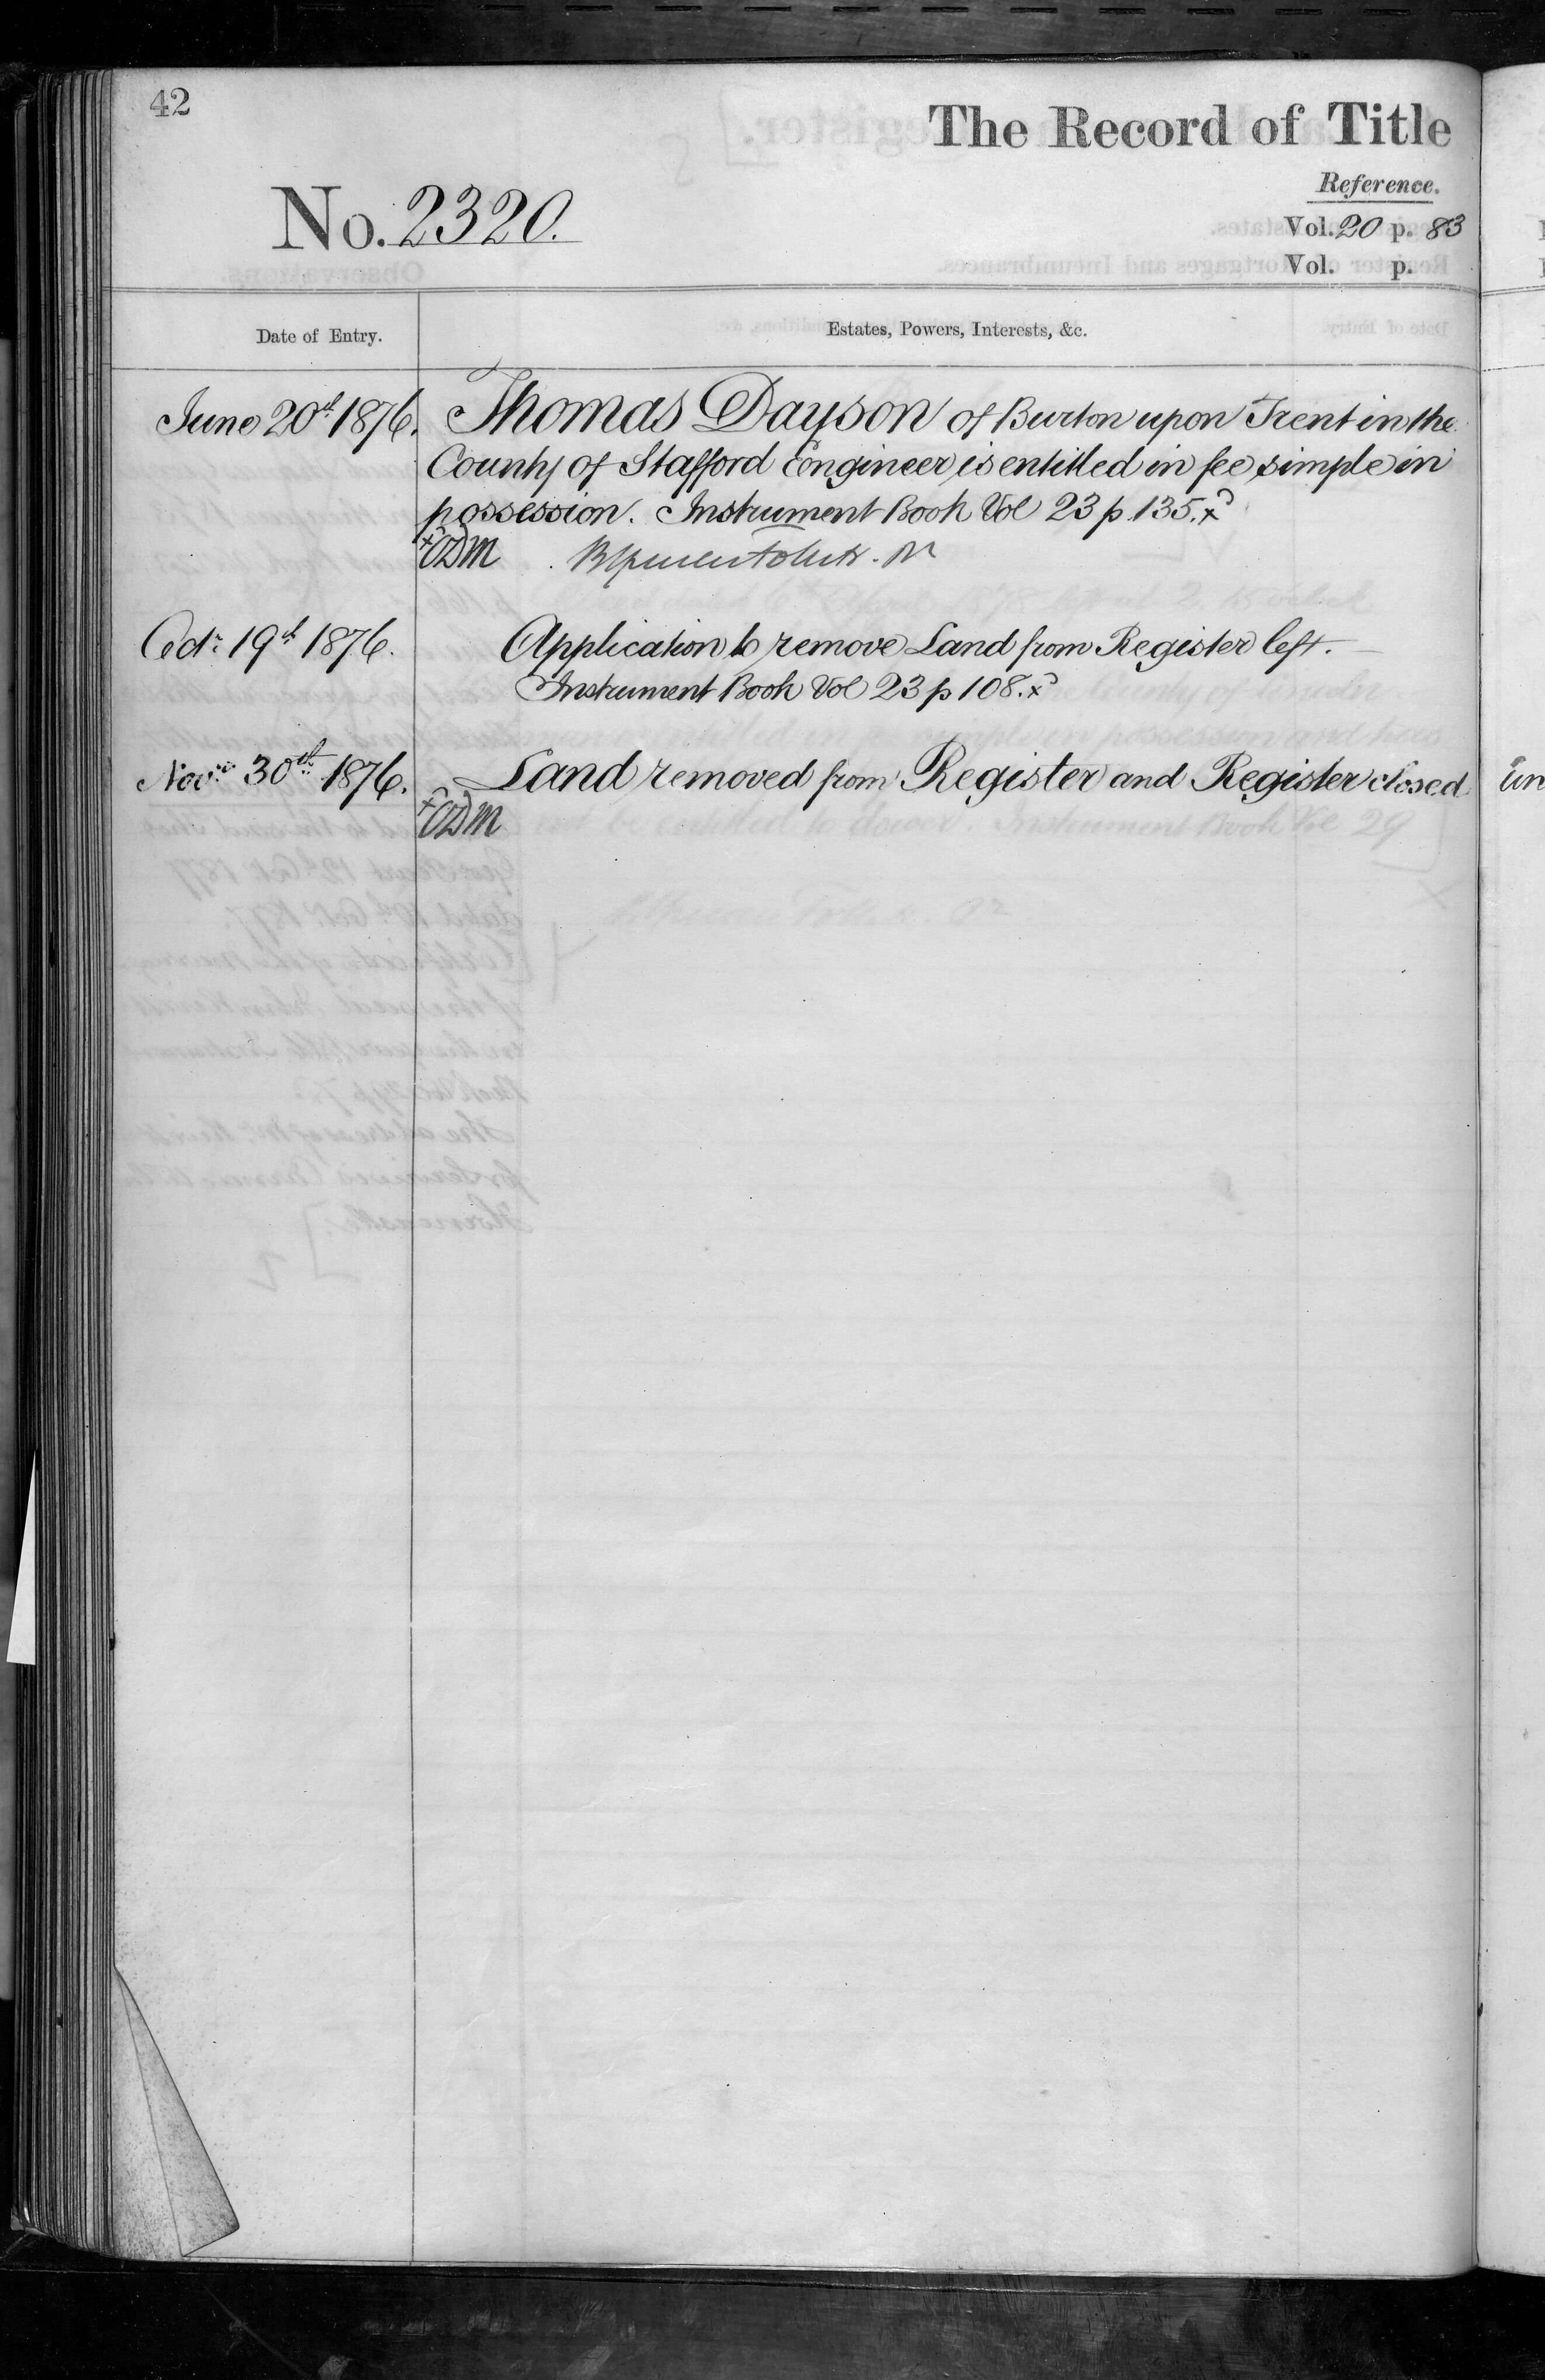 42
The Record of Title
Reference.
No. 2320.
Vol. 20 p. 83
Vol. p.
Date of Entry.
Estates, Powers, Interests, &c.
June 20th 1876. Thomas Dayson of Burton upon Trent in the
County of Stafford Engineer is entitled in fee simple in
possession. Instrument Book Vol 23 p. 135.
Octr. 19th 1876. Application to remove Land from Register left.
Instrument Book Vol 23 p 108.
Novr. 30th 1876. Land removed from Register and Register closed